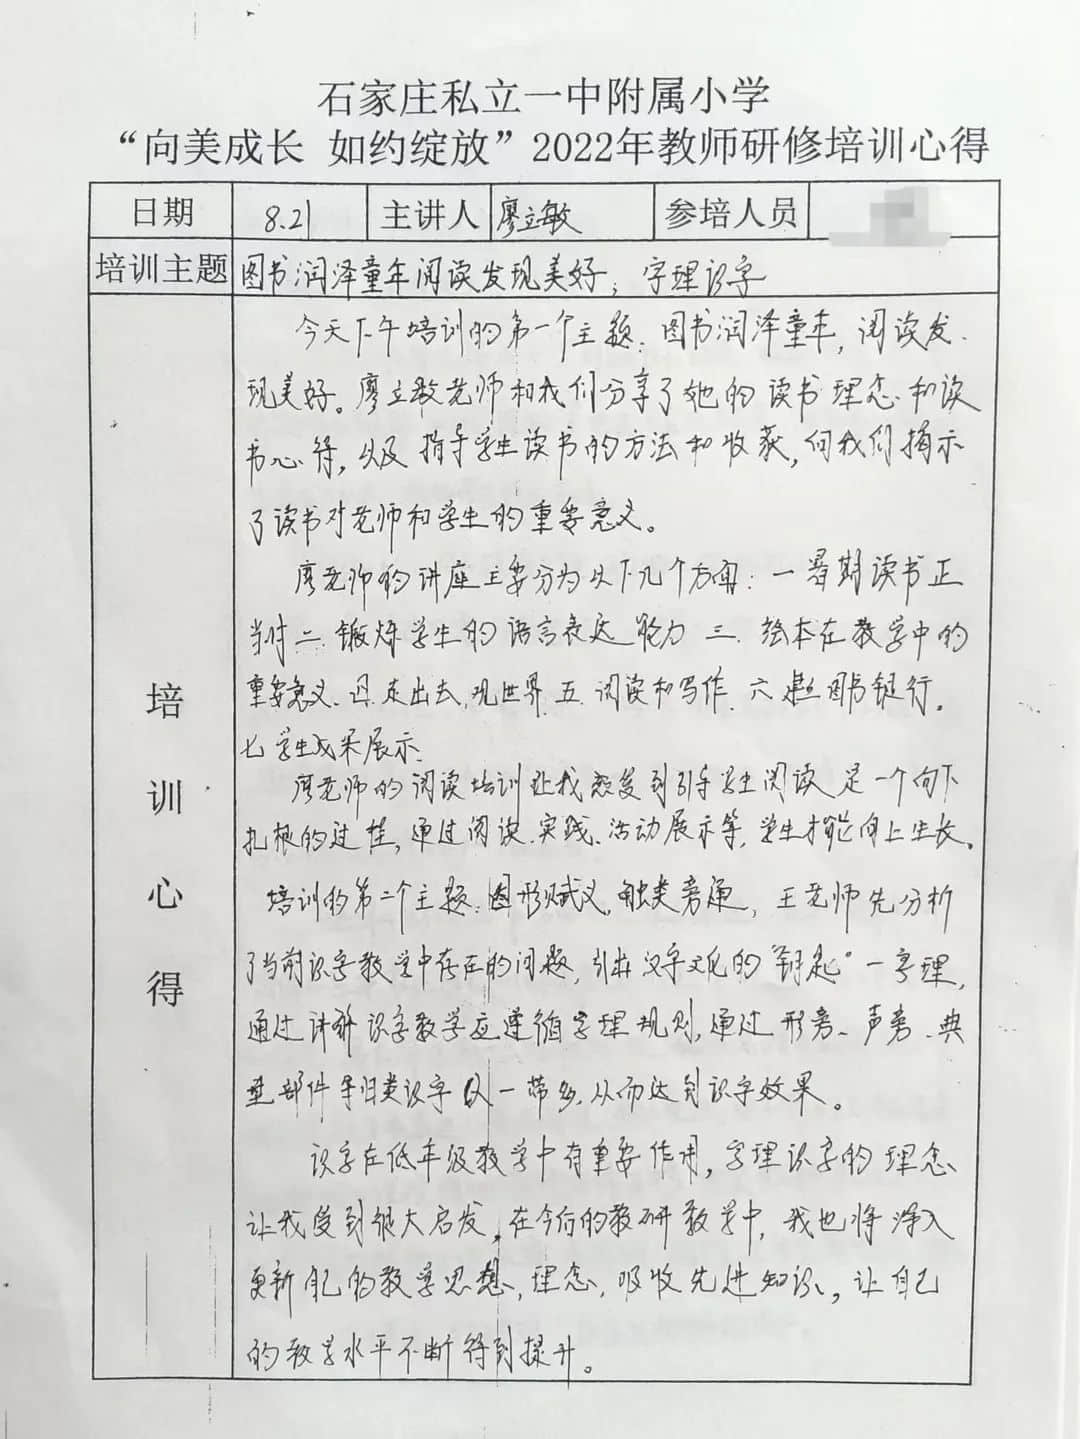 石家庄私立一中附属小学
“向美成长 如约绽放”2022年教师研修培训心得
日期 8.21 主讲人 廖立敏 参培人员
培训主题 图书润泽童年阅读发现美好；字理识字
培训心得
今天下午培训的第一个主题：图书润泽童年，阅读发
现美好。廖立敏老师和我们分享了她的读书理念和读
书心得，以及指导学生读书的方法和收获，向我们揭示
了读书对老师和学生的重要意义。
廖老师的讲座主要分为以下几个方面：一 暑期读书正
当时 二 锻炼学生的语言表达能力 三. 绘本在教学中的
重要意义. 四. 走出去，观世界. 五. 阅读和写作. 六 图书银行.
七 学生成果展示.
廖老师的阅读培训让我感受到引导学生阅读是一个向下
扎根的过程，通过阅读、实践、活动展示等，学生才能向上生长。
培训的第二个主题：图形赋义，触类旁通，王老师先分析
了当前识字教学中存在的问题，引出汉字文化的“钥匙”一字理，
通过讲解识字教学应遵循字理规则，通过形旁、声旁、典
型部件等归类识字 以一带多，从而达到识字效果。
识字在低年级教学中有重要作用，字理识字的理念
让我受到很大启发，在今后的教研教学中，我也将深入
更新自己的教学思想，理念，吸收先进知识，让自己
的教学水平不断得到提升。